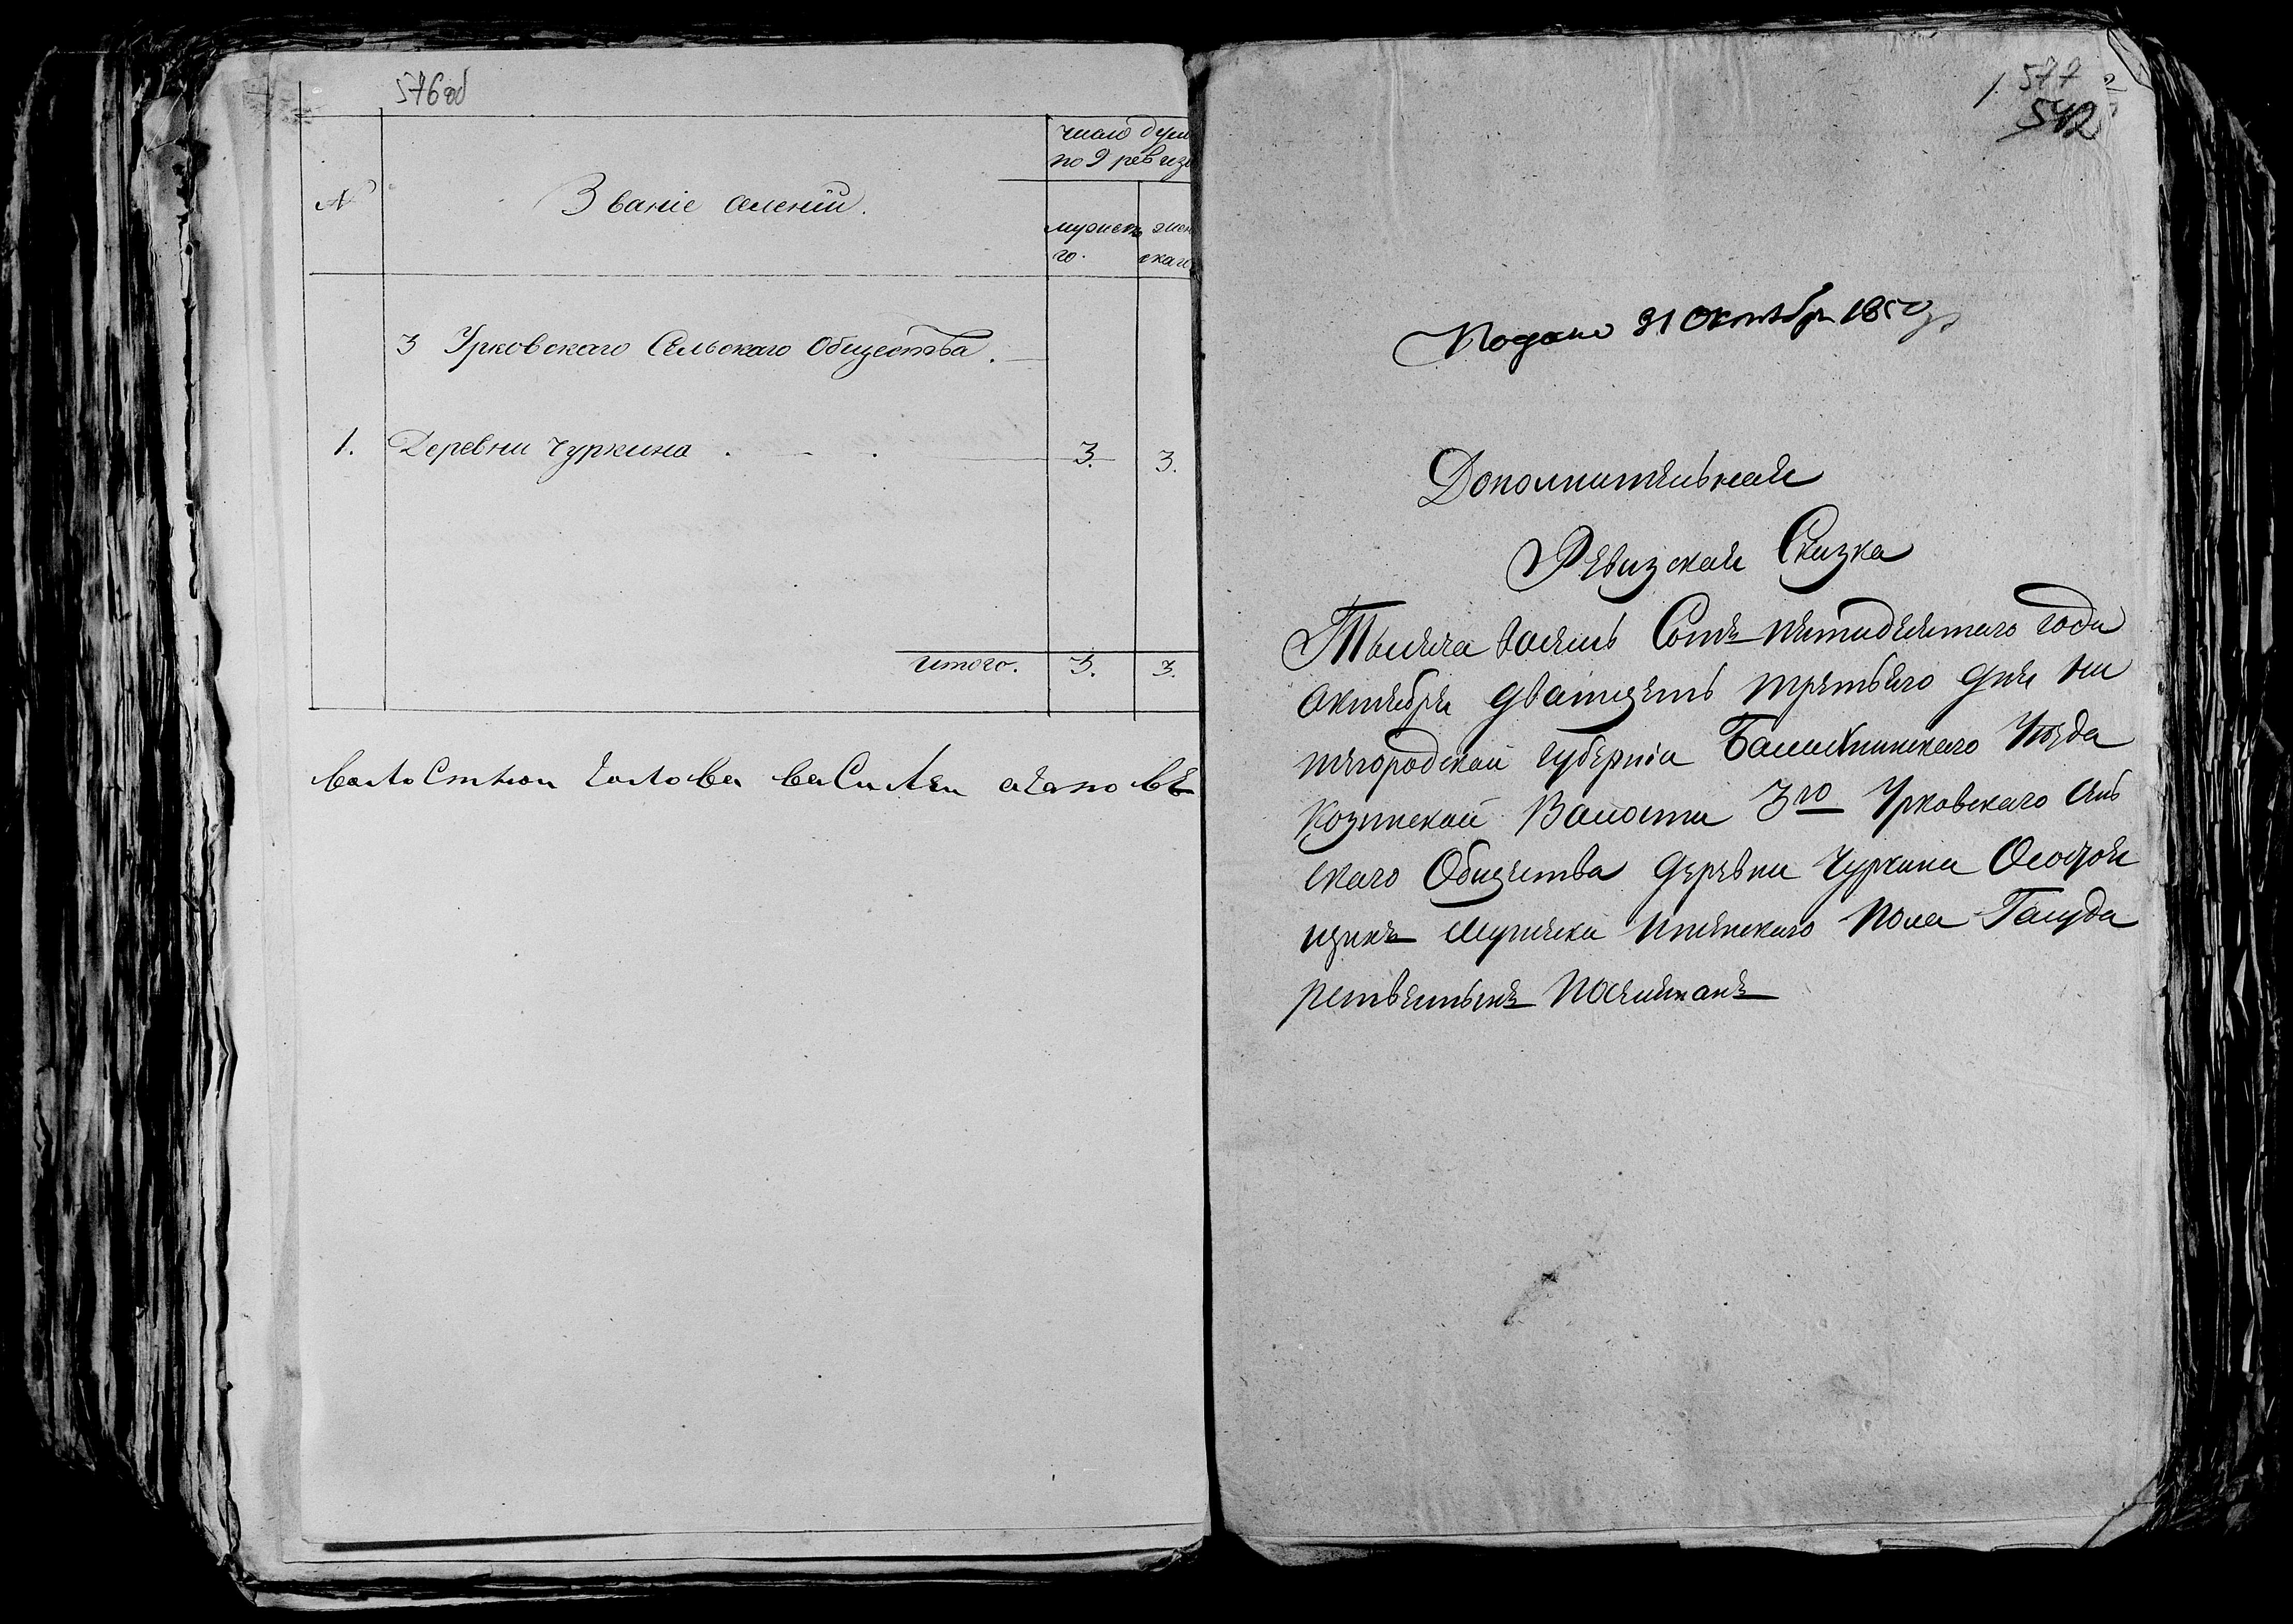 576 об
№
Званіе селеній.
число душ
по 9 ревизі
мужеск
го.
жен
скаго
3 Урковскаго Сельскаго Общества.
1. Деревни Чуркина 3. 3.
Итого. 3. 3.
валастнои Голова василеи
577
542
Подано 31 октября 1850 г
Дополнительная
Ревизская Сказка
Тысяча восемь Сотъ пятидесятаго года
октября дватцать третьяго дня Ни
жегородской Губерніи Уезда
Козинской Волости 3го Урковскаго Сель
скаго Общества деревни Чуркина О состоя
щихъ мужеска и женскаго пола Государ
ственныхъ